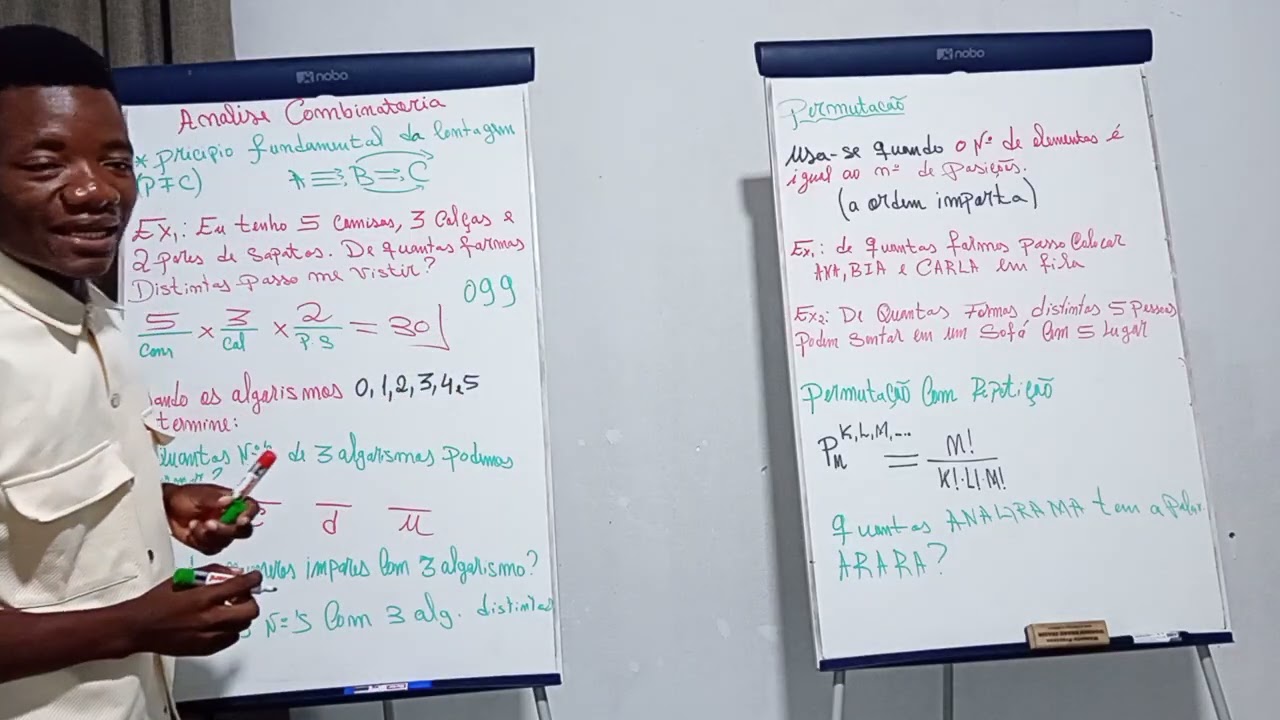 nobo
Analise Combinatoria
* pricipio fundamental da Contagem
(PFC)
A B C
Ex1: Eu tenho 5 camisas, 3 Calças e
2 pares de Sapatos. De quantas formas
Distintas Passo me Vistir?
099
5 × 3 × 2 = 30
Cam Cal P.S
ando os algarismos 0,1,2,3,4,5
termine:
uantos Nos de 3 algarismas Podemos
d u
impares Com 3 algarismo?
N=S Com 3 alg. distintas
nobo
Permutação
Usa-se quando o Nº de elementos é
igual ao nº de Pasições.
(a ordem importa)
Ex1: de quantas formas passo Colocar
ANA, BIA e CARLA em fila
Ex2: De Quantas Formas distintas 5 Pessoas
Podem Sentar em um Sofá Com 5 Lugar
Permutação Com Repetição
P M K,L,M,... = M!
K!·L!·M!
quantas ANAGRAMA tem a Palav
ARARA?